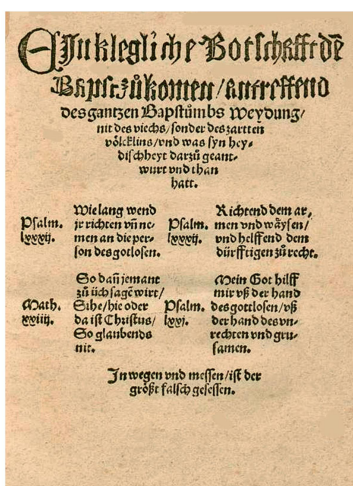 EJn klegliche Botschafft dē
Bapst zůkomen / antreffend
des gantzen Bapstůmbs Weydung /
nit des viechs / sonder des zartten
völcklins / vnd was syn hey-
dischheyt darzů geant-
wurt vnd than
hatt.
Psalm.
lxxxij.
Wie lang wend
jr richten vn̄ ne-
men an die per-
son des gotlosen.
Psalm.
lxxxij.
Richtend dem ar-
men vnd wäysen /
vnd helffend dem
dürfftigen zů recht.
Math.
xxiiij.
So dañ jemant
zů üch sagē wirt /
Sihe / hie oder
da ist Christus /
So glaubends
nit.
Psalm.
lxxj.
Mein Got hilff
mir vß der hand
des gottlosen / vß
der hand des vn-
rechten vnd gru-
samen.
Jn wegen vnd messen / ist der
größt falsch gesessen.